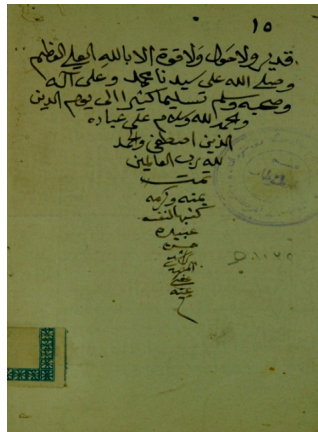 ١٥
قدير ولا حول ولا قوة الا بالله العلي العظيم
وصلى الله على سيدنا محمد وعلى آله
وصحبه وسلم تسليما كثيرا الى يوم الدين
والحمد لله وسلام على عباده
الذين اصطفى والحمد
لله رب العالمين
تمت
بمنه وكرمه
كتبها
عبيده
حسن
عفي
عنه